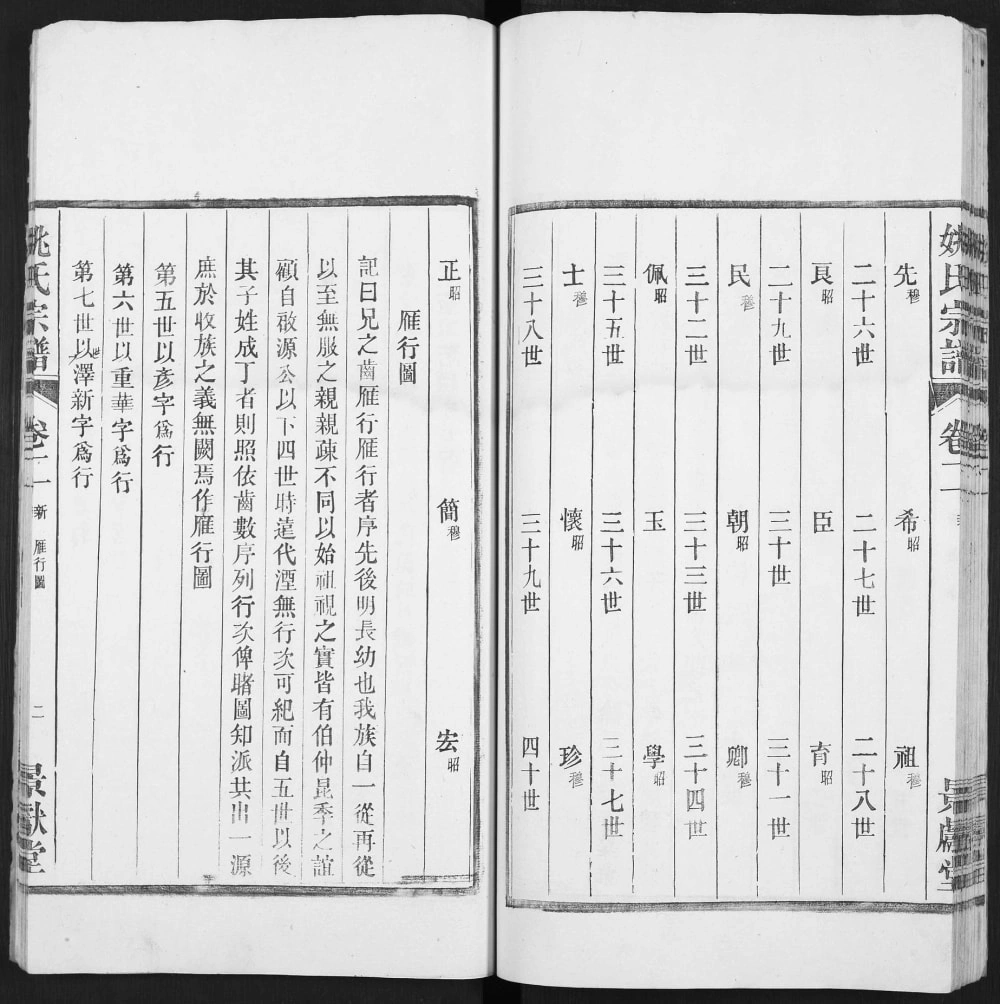 姚氏宗譜 卷二 景獻堂
先穆 希昭 祖穆
二十六世 二十七世 二十八世
良昭 臣 育昭
二十九世 三十世 三十一世
民穆 朝昭 卿穆
三十二世 三十三世 三十四世
佩昭 玉 學昭
三十五世 三十六世 三十七世
士穆 懷昭 珍穆
三十八世 三十九世 四十世
正昭 簡穆 宏昭
雁行圖
記曰兄之齒雁行雁行者序先後明長幼也我族自一從再從
以至無服之親親疎不同以始祖視之實皆有伯仲昆季之誼
顧自啟源公以下四世時遠代湮無行次可紀而自五世以後
其子姓成丁者則照依齒數序列行次俾睹圖知派共出一源
庶於收族之義無闕焉作雁行圖
第五世以彥字爲行
第六世以重華字爲行
第七世以世澤新字爲行
姚氏宗譜 卷二 新 雁行圖 二 景獻堂